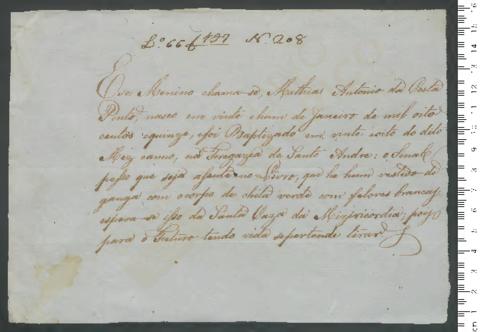 L.o 66 f 197 N. 208
Este Menino chama-se, Mathias Antonio da Costa
Pinto, nasceo em vinte e hum de Janeiro de mil oito
centos e quinze, e foi Baptizado em vinte e oito do dito
Mez e anno, na Freguezia de Santo Andre: o Sinal
pesso que seja asentado no Livro, que he hum vestido de
ganga com o corpo de chita verde com felores brancas,
espera-se isso da Santa Caza da Mizericordia; pois
para o Futuro tendo vida se pertende tirar